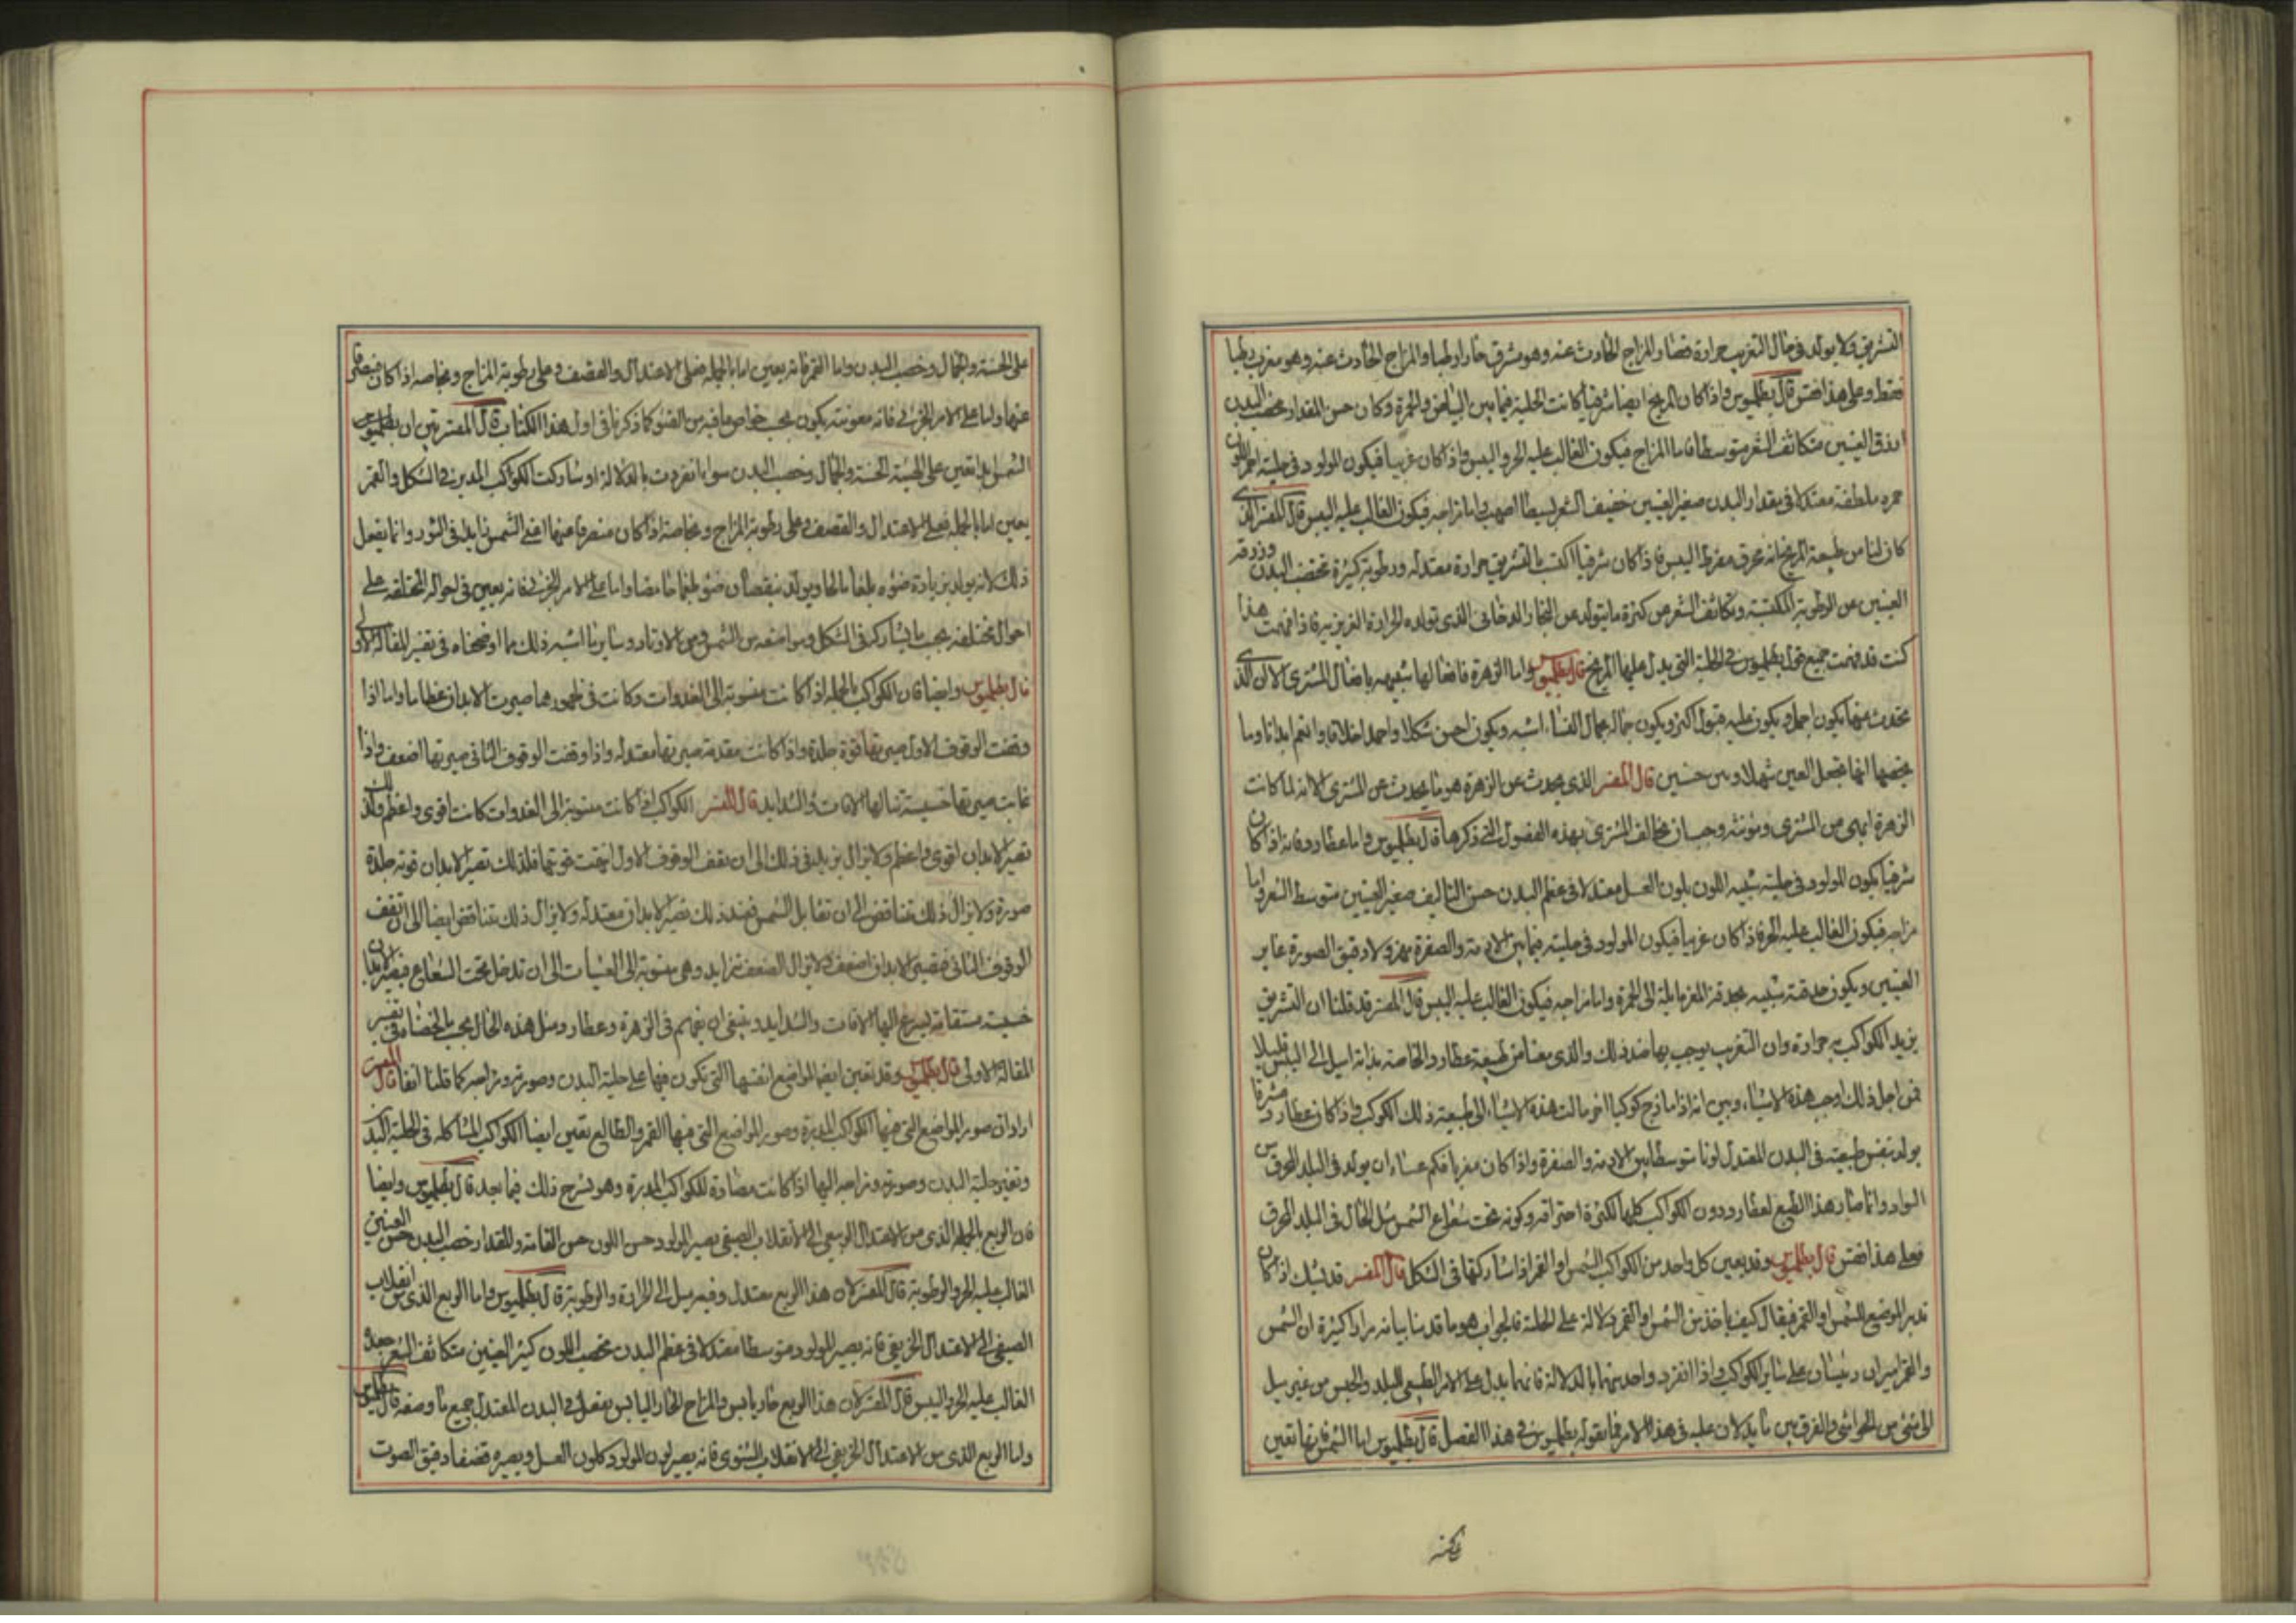 التشريق ولا يولد في حال التغريب حرارة فصار المزاج الحادث عنه وهو مشرق حارا رطبا والمزاج الحادث عنه وهو مغرب رطبا
فقط وعلى هذا فقس قال بطلميوس واذا كان المريخ ايضا شرقيا كانت الحلية فيما بين البياض والحمرة وكان حسن المقدار مخصب البدن
ازرق العينين متكاثف الشعر متوسطا فاما المزاج فيكون الغالب عليه الحر واليبس واذا كان غربيا فيكون المولود في حليته احمر اللون
حمرة ملطفة معتدلا في مقدار البدن صغير العينين خفيف الشعر لبسيطا اصهب واما مزاجه فيكون الغالب عليه اليبس قال المفسر الذي
كان لنا من طبيعة المريخ انه محرق مفرط اليبس فاذا كان شرقيا اكتسب بالتشريق حرارة معتدلة ورطوبة كثيرة تخصب البدن وزرقة
العينين عن الرطوبة المكتسبة وتكاثف الشعر من كثرة ما يتولد من البخار الدخاني الذي تولده الحرارة الغريزية فاذا فهمت هذا
كنت قد فهمت جميع قول بطلميوس في الحلية التي يدل عليها المريخ قال بطلميوس واما الزهرة فافعالها شبيهة بافعال المشتري الا ان الذي
يحدث عنها يكون اجمل ويكون عليه قبول اكثر ويكون جماله بجمال النساء اشبه ويكون احسن شكلا واحمد اخلاقا وانعم ابدانا ومما
يخصها انها تجعل العين شهلا وبين حسنين قال المفسر الذي يحدث عن الزهرة هو ما يحدث عن المشتري الا انه لما كانت
الزهرة ابهى من المشتري ومؤنثة وجب ان تخالف المشتري بهذه الفصول التي ذكرها قال بطلميوس واما عطارد فانه اذا كان
شرقيا يكون المولود في حليته شبيه اللون بلون العسل معتدلا في عظم البدن حسن التاليف صغير العينين متوسط الشعر واما
مزاجه فيكون الغالب عليه الحر فاذا كان غربيا فيكون المولود في حليته فيما بين الادمة والصفرة مهزولا دقيق الصورة غاير
العينين ويكون حدقته شبيه بحدقة المعز مايلة الى الحمرة واما مزاجه فيكون الغالب عليه اليبس قال المفسر قد قلنا ان التشريق
يزيد الكواكب حرارة وان التغريب يوجب بها ضد ذلك والذي معنا من طبيعة عطارد الخاصة بذاته اميل الى اليبس قليلا
فمن اجل ذلك اوجب هذه الاشياء وبين انه اذا مازج كوكبا اخر مالت هذه الاشياء الى طبيعة ذلك الكوكب واذا كان عطارد مشرقا
يولد بنفس طبيعته في البدن المعتدل لونا متوسطا بين الادمة والصفرة واذا كان مغربا فكم عساه ان يولد في البلد المحرق من
السواد وانما صار هذا الطبع لعطارد دون الكواكب كلها لكثرة احتراقه وكونه تحت شعاع الشمس مثل الحال في البلد المحرق
فعلى هذا فقس قال بطلميوس وقد يعين كل واحد من الكواكب الشمس او القمر اذا شاركها في الشكل قال المفسر قد يشك اذا كان
تدبر الموضع للشمس او القمر فيقال كيف ياخذ من الشمس والقمر دلالة على الحلية فالجواب هو ما قدمنا بيانه مرارا كثيرة ان الشمس
والقمر اميران رئيسان على ساير الكواكب واذا انفرد واحد منهما بالدلالة فانما يدل على الامر الطبيعي للبلد والجنس من غير ميل
الى شيء من الحواشي والفرق بين ما يدلان عليه في هذا الامر فيما يقوله بطلميوس في هذا الفصل قال بطلميوس اما الشمس فانها تعين
على الحسنة والجمال وخصب البدن واما القمر فانه يعين اما بالجملة فعلى الاعتدال والقضف وعلى رطوبة المزاج وبخاصه اذا كان منصرفا
عنها واما على الامر الجزئي فانه معونته يكون بحسب خواص ما فيه من الضوء كما ذكرنا في اول هذا الكتاب قال المفسر تبين ان بطلميوس
الشمس ابدا تعين على الهيئة الحسنة والجمال وخصب البدن سواء انفردت بالدلالة او شاركت الكواكب المدبرة في الشكل والقمر
يعين اما بالجملة فعلى الاعتدال والقضف وعلى رطوبة المزاج وبخاصة اذا كان منصرفا عنها اعني الشمس زايدا في النور وانما يفعل
ذلك لانه يولد بزيادة ضوءه بلغما مالحا ويولد بنقصان ضوءه بلغما حامضا واما على الامر الجزئي فانه يعين في احواله المختلفة على
احوال مختلفة بحسب ما يشاركه في الشكل ومواضعه من الشمس ومن الاوتاد وساير ما اشبه ذلك مما اوضحناه في تفسير المقالة الاولى
قال بطلميوس وايضا فان الكواكب بالجملة اذا كانت منسوبة الى الغدوات وكانت في ظهورها صيرت الابدان عظاما واما اذا
وقفت الوقوف الاول صيرتها قوة جلدة واذا كانت مقدمة صيرتها معتدلة واذا وقفت الوقوف الثاني صيرتها اضعف واذا
غابت صيرتها خسيسة تنالها الافات والشدايد قال المفسر الكواكب اذا كانت منسوبة الى الغدوات كانت اقوى واعظم ولذلك
تصير الابدان اقوى واعظم ولا يزال يزيد في ذلك الى ان يقف الوقوف الاول قوتها فلذلك تصير الابدان قوية جلدة
صورة ولا يزال ذلك تناقص الى ان تقابل الشمس فعند ذلك تصير الابدان معتدلة ولا يزال ذلك تناقص ايضا الى ان تقف
الوقوف الثاني فتصير الابدان اضعف ولا يزال الضعف تزايد وهي منسوبة الى العشيات الى ان تدخل تحت الشعاع فتصير الابدان
خسيسة مستقامة ليسرع اليها الافات والشدايد وينبغي ان يفهم في الزهرة وعطارد مثل هذه الحال بحسب ما لخصناه في تفسير
المقالة الاولى قال بطلميوس وقد تعين ايضا المواضع انفسها التي تكون فيها على حلية البدن وصورته ومزاجه كما قلنا انفا قال المفسر
اراد ان صور المواضع التي فيها الكواكب المدبرة وصور المواضع التي فيها القمر والطالع تعين ايضا الكواكب المشاكلة في الحلية البدن
وتغير حلية البدن وصورته ومزاجه اليها اذا كانت مضادة للكواكب المدبرة وهو يشرح ذلك فيما بعد قال بطلميوس وايضا
فان الربع بالجملة الذي من الاعتدال الربيعي الى الانقلاب الصيفي يصير المولود حسن اللون حسن القامة والمقدار خصب البدن حسن العينين
الغالب عليه الحر والرطوبة قال المفسر لان هذا الربع معتدل وفيه ميل الى الحرارة والرطوبة قال بطلميوس واما الربع الذي من انقلاب
الصيفي الى الاعتدال الخريفي فانه يصير المولود متوسطا معتدلا في عظم البدن مخصب اللون كبير العينين متكاثف الشعر جعدا
الغالب عليه الحر واليبس قال المفسر لان هذا الربع حار يابس والمزاج الحار اليابس يفعل في البدن المعتدل جميع ما وصفه قال بطلميوس
واما الربع الذي من الاعتدال الخريفي الى الانقلاب الشتوي فانه يصير لون المولود كلون العسل ويصيره قضيفا دقيق الصوت